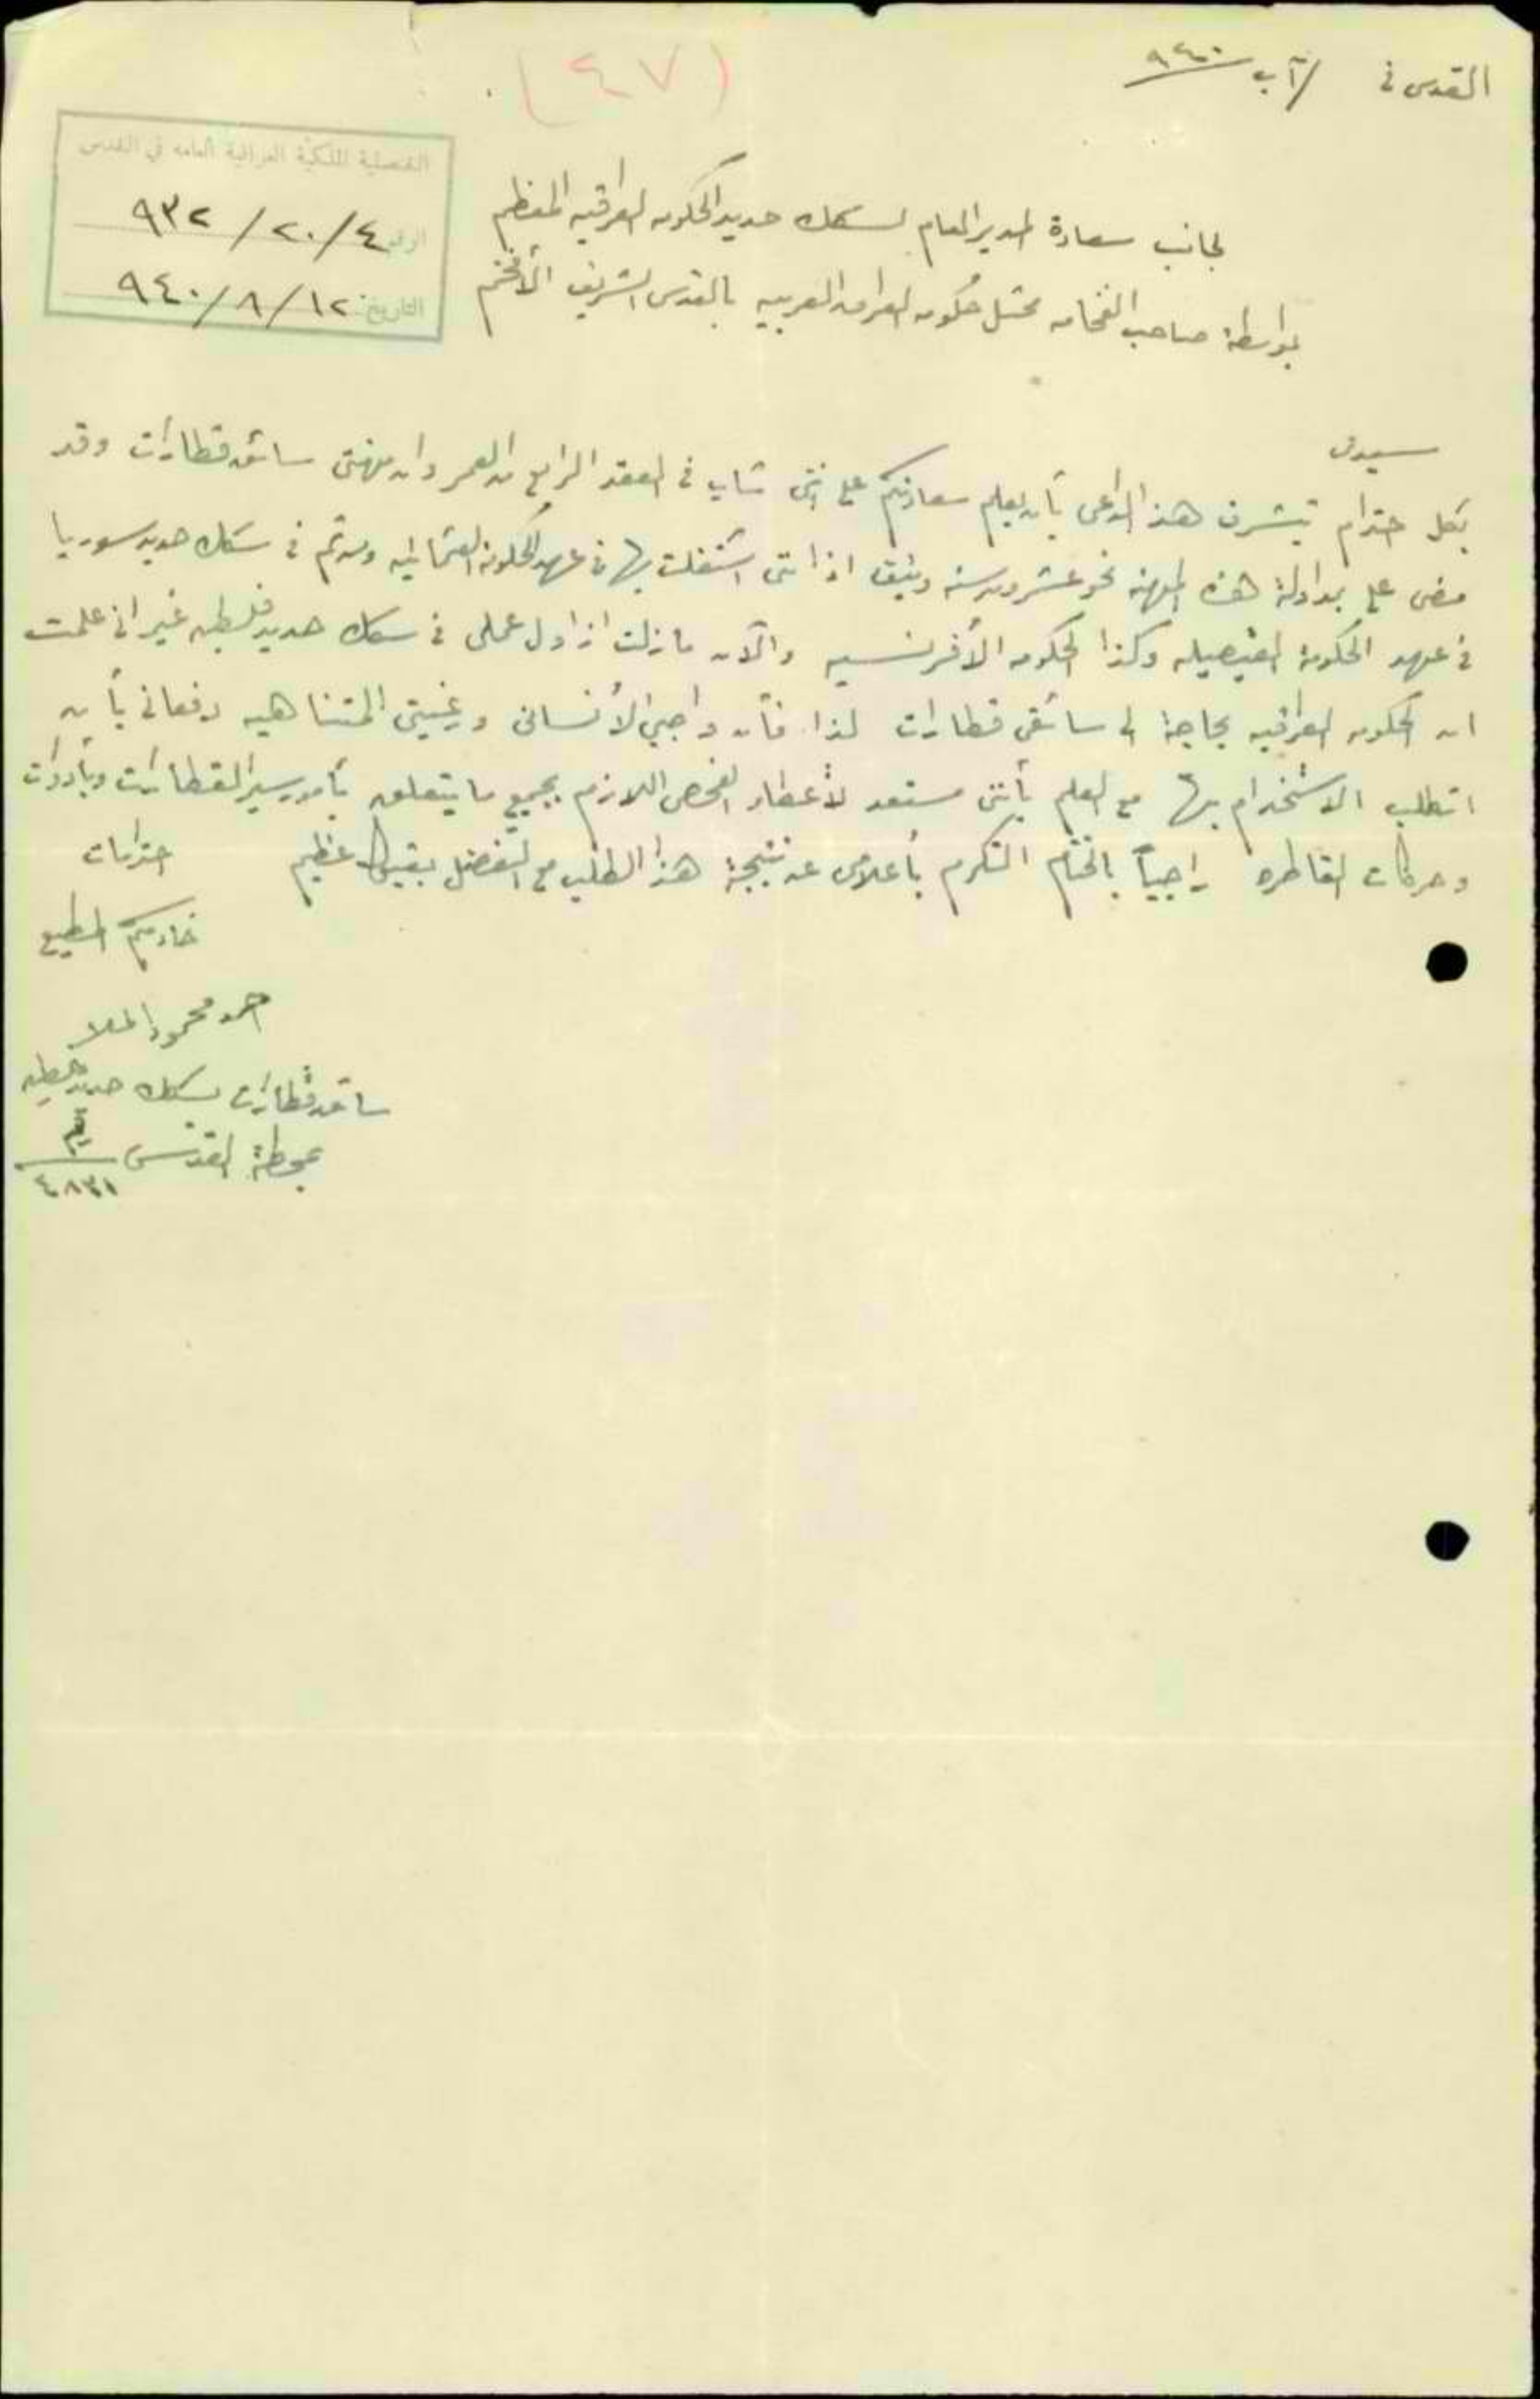 القدس في /آب ٩٤٠
(٤٧)
القنصلية الملكية العراقية العامة في القدس
الرقم ٩٣٢/٢٠/٤
التاريخ: ٩٤٠/٨/١٢
لجانب سعادة المدير العام لسكك حديد الحكومه العراقيه المعظم
بواسطة صاحب الفخامه ممثل حكومه العراق العربيه بالقدس الشريف الأفخم
سيدي
بكل احترام يتشرف هذا الداعي بأن يعلم سعادتكم على انني شاب في العقد الرابع من العمر وان مهنتي سائق قطارات وقد
مضى علي بمداولة هذه المهنه نحو عشرون سنه ونيف اذ انني اشتغلت بها في عهد الحكومة العثمانيه ومن ثم في سكك حديد سوريا
في عهد الحكومة الفيصيليه وكذا الحكومه الأفرنسيه والآن ما زلت ازاول عملي في سكك حديد فلسطين غير اني علمت
ان الحكومه العراقيه بحاجة الى سائقي قطارات لذا فأن واجبي الأنساني ورغبتي المتناهيه دفعاني بأن
اتطلب الاستخدام بها مع العلم بأنني مستعد لأعطاء الفحص اللازم بجميع ما يتعلق بأمور سير القطارات وبأدوات
وحركات القاطره راجياً بالختام التكرم بأعلامي عن نتيجة هذا الطلب مع التفضل بقبول عظيم احترامات
خادمكم المطيع
احمد محمود الملا
سائق قطارات بسكك حديد فلسطين
بمحطة القدس رقم ٤٨٣١